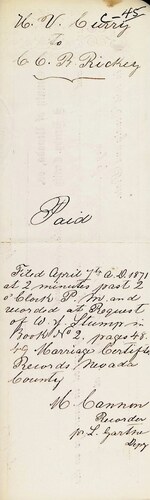 C-45
H. V. Curry
To
C. C. R. Rickey
Paid
Filed April 7th A.D. 1871
at 2 minutes past 2
o'Clock P. M. and
recorded at Request
of W. Y. Stump in
Book No 2, pages 48.
49 Marriage Certific
Records, Nevada
County
M. Cannon
Recorder
pr L. Garthe
Depy